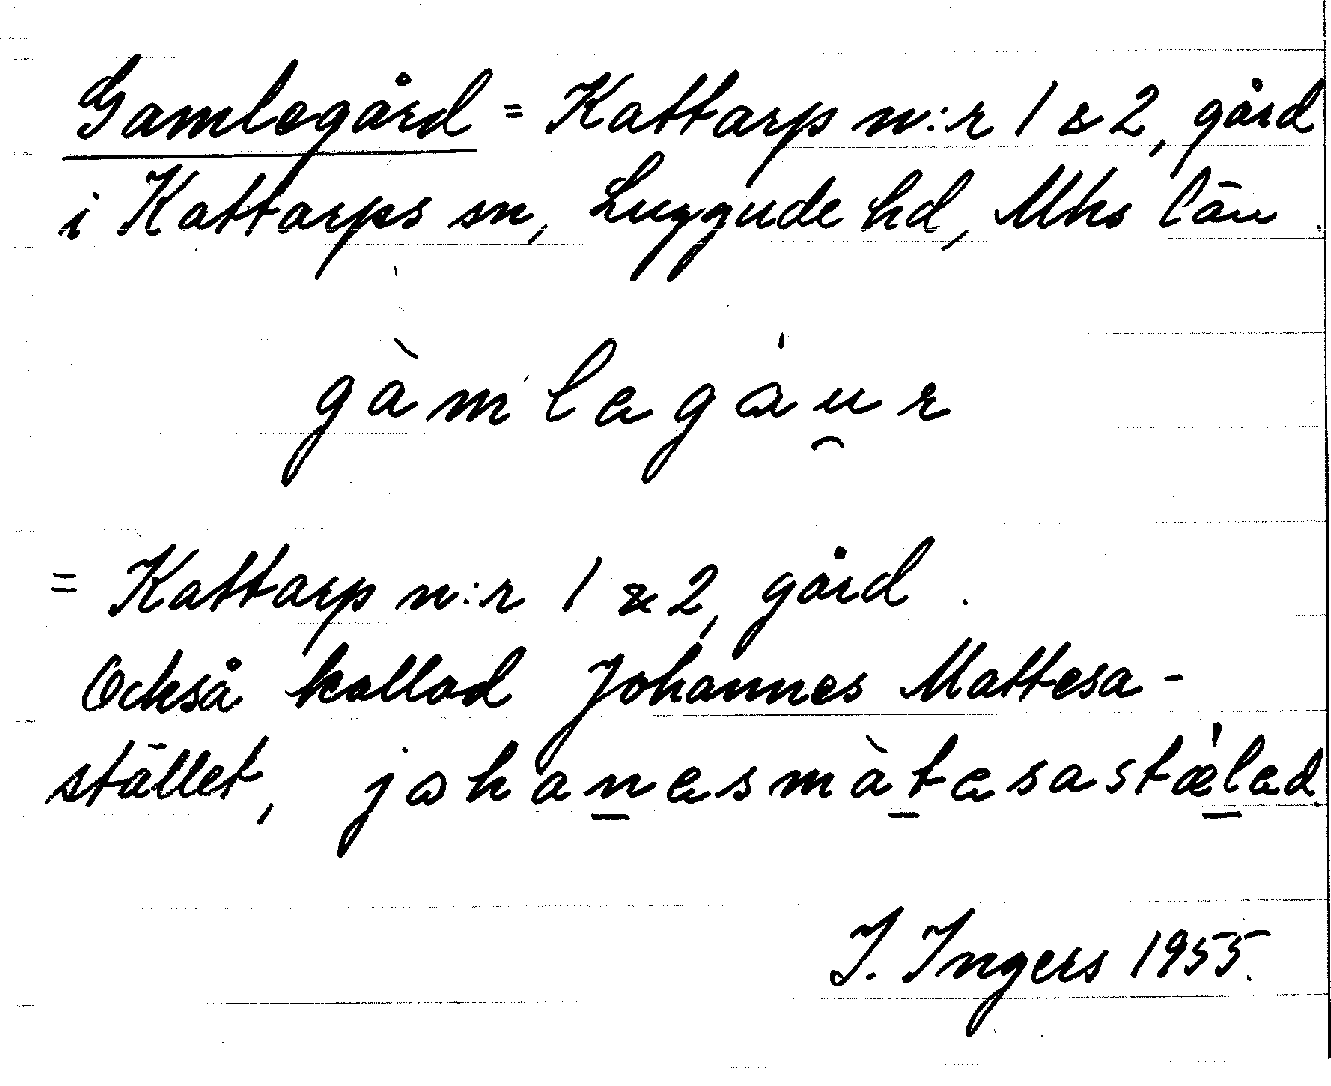 Gamlegård = Kattarp n:r 1 & 2, gård
i Kattarps sn, Luggude hd, Mhs län.
gàmlagáu̯r
= Kattarp n:r 1 & 2, gård.
Också kallad Johannes Mattesa-
stället, johan̲asmàt̲asastæ̀l̲ad.
I. Ingers 1955.